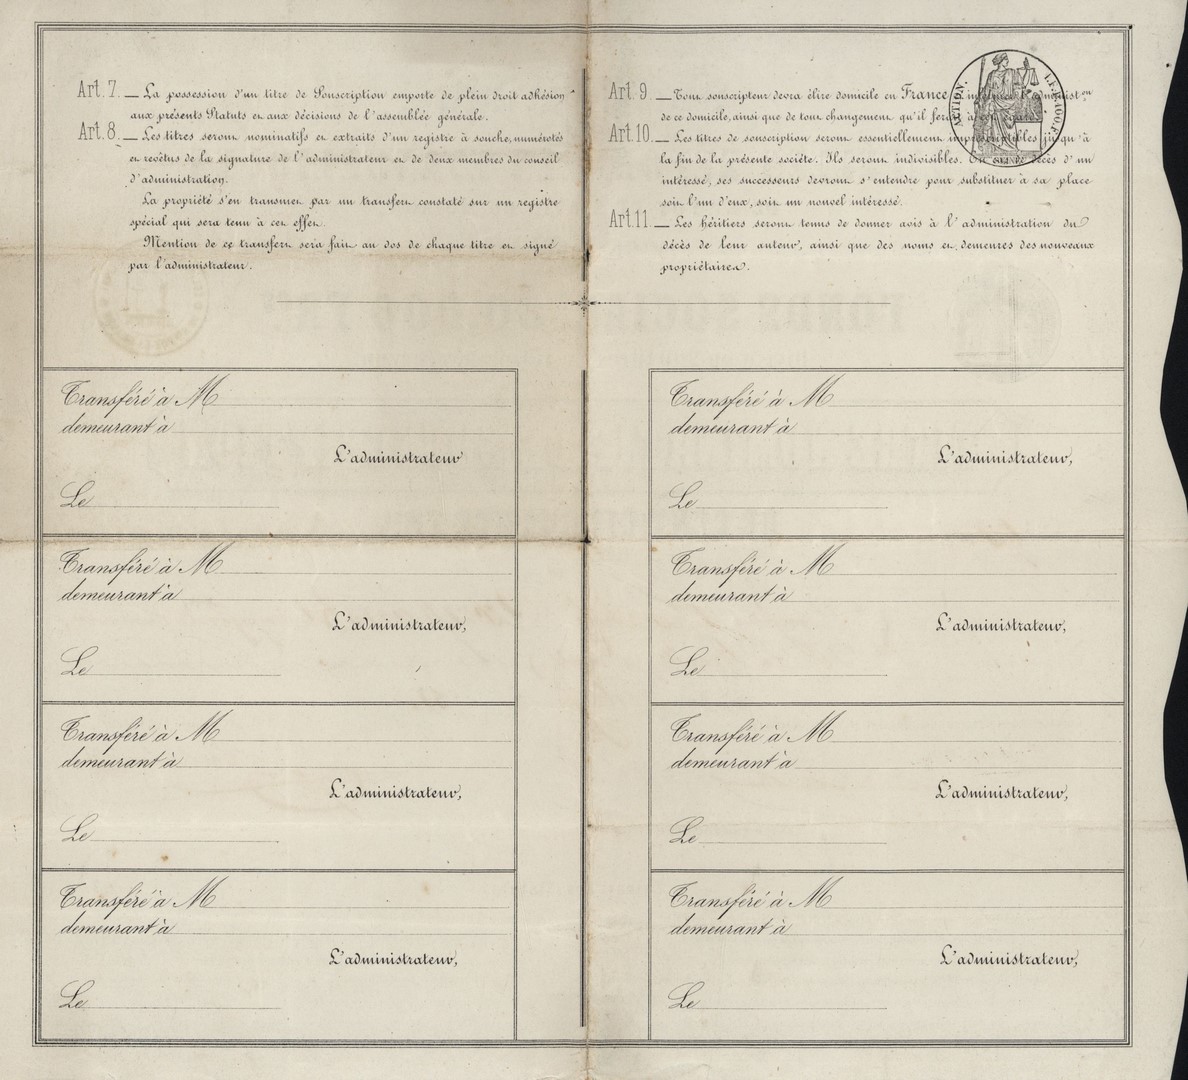 Art. 7. — La possession d'un titre de Souscription emporte de plein droit adhésion
aux présents Statuts et aux décisions de l'assemblée générale.
Art. 8. — Les titres seront nominatifs et extraits d'un registre à souche, numérotés
et revêtus de la signature de l'administrateur et de deux membres du conseil
d'administration.
La propriété s'en transmet par un transfert constaté sur un registre
spécial qui sera tenu à cet effet.
Mention de ce transfert sera fait au dos de chaque titre et signé
par l'administrateur.
Art. 9 — Tout souscripteur devra élire domicile en France
de ce domicile, ainsi que de tout changement qu'il
Art. 10. — Les titres de souscription seront essentiellement jusqu'à
la fin de la présente société. Ils seront indivisibles. En décès d'un
intéressé, ses successeurs devront s'entendre pour substituer à sa place
soit l'un d'eux, soit un nouvel intéressé.
Art. 11. — Les héritiers seront tenus de donner avis à l'administration du
décès de leur auteur, ainsi que des noms et demeures des nouveaux
propriétaires.
Transféré à M
demeurant à
L'administrateur
Le
Transféré à M
demeurant à
L'administrateur,
Le
Transféré à M
demeurant à
L'administrateur,
Le
Transféré à M
demeurant à
L'administrateur,
Le
Transféré à M
demeurant à
L'administrateur,
Le
Transféré à M
demeurant à
L'administrateur,
Le
Transféré à M
demeurant à
L'administrateur,
Le
Transféré à M
demeurant à
L'administrateur,
Le